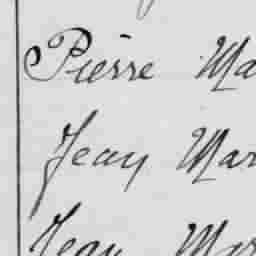 Pierre Ma
Jean Mar
Jean Mar